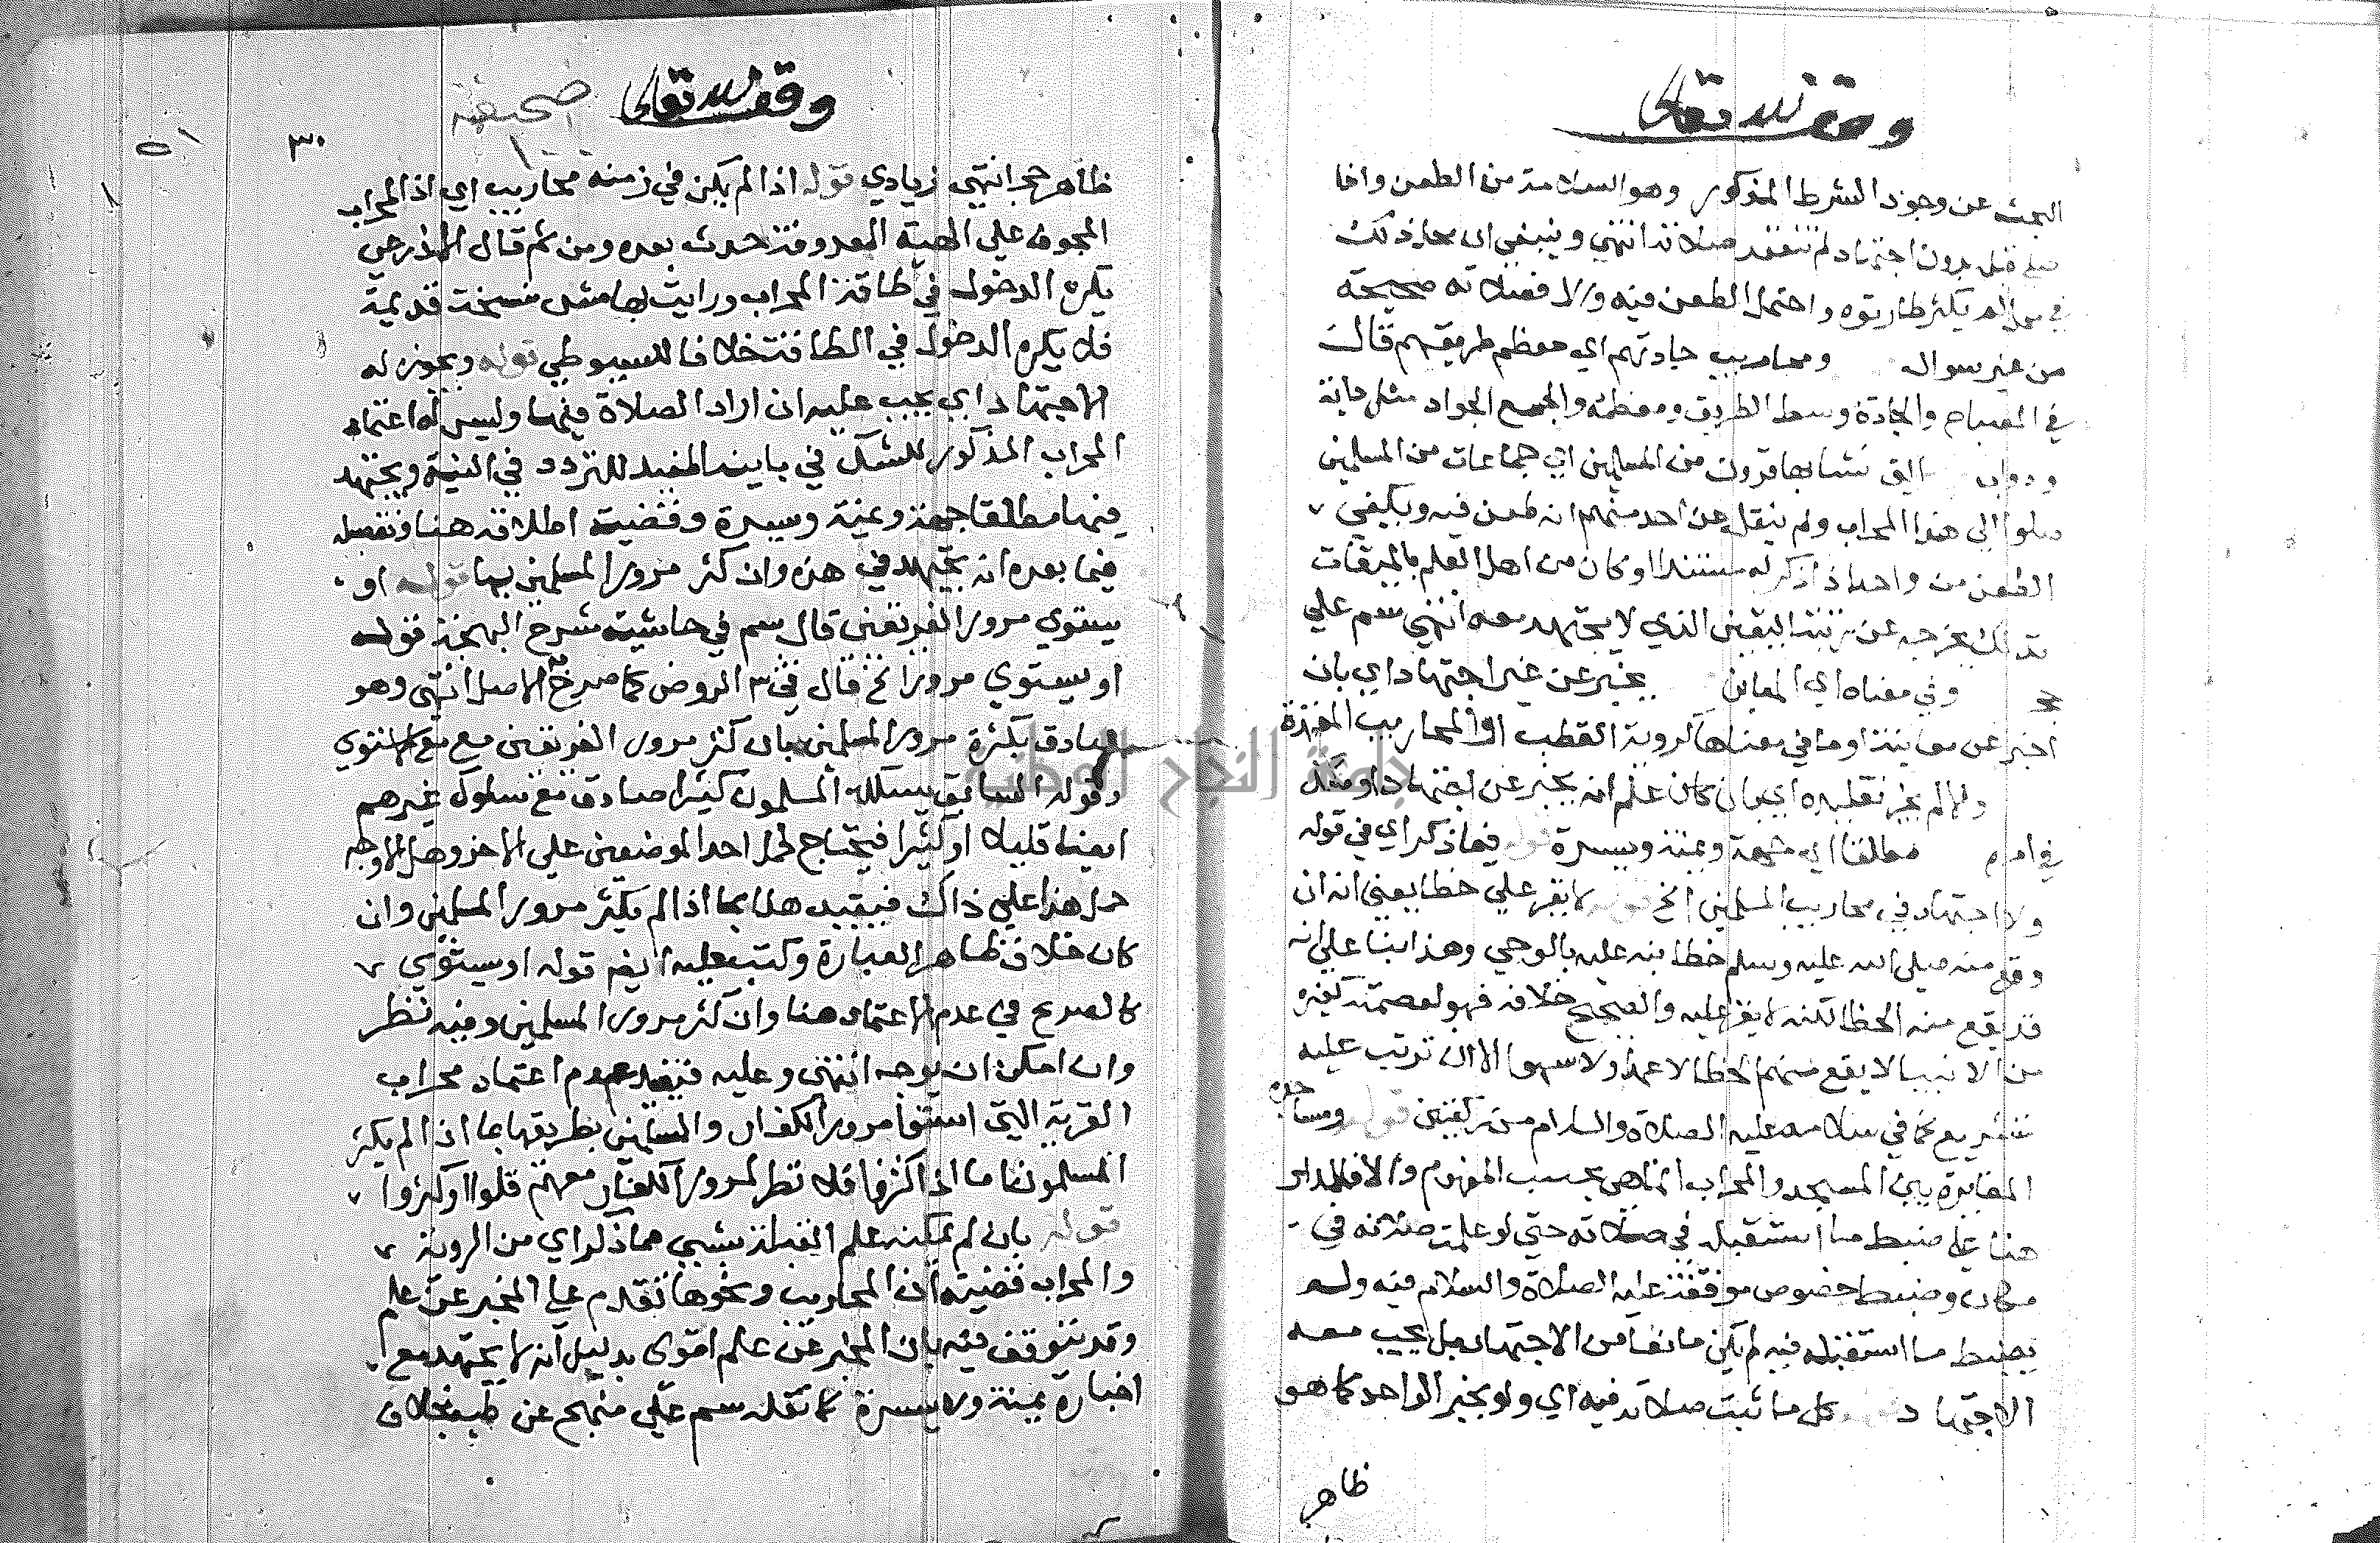 وقف لله تعالى
البحث عن وجود الشرط المذكور وهو السلامة من الطعن واذا
صلى قبل بدون اجتهاد لم تنعقد صلاته انتهى وينبغي ان محل ذلك
في محل لم يكثر طارقوه واحتمل الطعن فيه والا فصلاته صحيحة
من غير سوال ومحاريب جادتهم اي معظم طريقهم قال
في المصباح والجادة وسط الطريق ومعظمه والجمع الجواد مثل دابة
ودواب التي نشا بها قرون من المسلمين اي جماعات من المسلمين
صلوا الى هذا المحراب ولم ينقل عن احد منهم انه طعن فيه ويكفي
الطعن من واحد اذا ذكر له مستندا او كان من اهل العلم بالميقات
فذلك يخرجه عن رتبة اليقين الذي لا يجتهد معه انتهى سم على
حج وفي معناه اي المعاين يخبر عن غير اجتهاد اي بان
اخبر عن معاينة او ما في معناها كروية القطب او المحاريب المعتمدة
ولا لم يجز تقليده اي بان كان علم انه يخبر عن اجتهاد او شك
في امره مطلقا اي جهة ويمنة ويسرة قوله فيما ذكر اي في قوله
ولا اجتهاد في محاريب المسلمين الخ قوله لا يقر على خطا يعني انه ان
وقع منه صلى الله عليه وسلم خطا ينبه عليه بالوحي وهذا بنا على انه
قد يقع منه الخطا لكنه لا يقر عليه والصحيح خلافه فهو لعصمته كغيره
من الانبيا لا يقع منهم الخطا لا عمدا ولا سهوا الا ان ترتب عليه
تشريع كما في سلامه عليه الصلاة والسلام من ركعتين قوله ومساجده
المغايرة بين المسجد والمحراب انما هي بحسب المفهوم والا فالمدار
هنا على ضبط ما استقبله في صلاته حتى لو علمت صلاته في
مكان وضبط خصوص موقفه عليه الصلاة والسلام فيه ولم
يضبط ما استقبله فيه لم يكن مانعا من الاجتهاد بل يجب معه
الاجتهاد قوله كل ما ثبت صلاته فيه اي ولو بخبر الواحد كما هو
ظاهر
وقف لله تعالى صحيفة
٣٠
ظاهر حج انتهى زيادي قوله اذا لم يكن في زمنه محاريب اي اذ المحراب
المجوف على الهيئة المعروفة حدث بعده ومن ثم قال الاذرعي
يكره الدخول في طاقة المحراب ورايت بهامش نسخة قديمة
فلا يكره الدخول في الطاقة خلافا للسيوطي قوله ويجوز له
الاجتهاد اي يجب عليه ان اراد الصلاة فيها وليس له اعتماد
المحراب المذكور للشك في بانيه المفيد للتردد في النية ويجتهد
فيها مطلقا جهة ويمنة ويسرة وقضية اطلاقه هنا وتفصيله
فيما بعده انه يجتهد في هذه وان كثر مرور المسلمين بها قوله او
يستوي مرور الفريقين قال سم في حاشية شرح البهجة قوله
او يستوي مرور الخ قال في ش الروض كما صرح به الاصل انتهى وهو
صادق بكثرة مرور المسلمين بان كثر مرور الفريقين مع التساوي
وقوله السابق يسلكه المسلمون كثيرا صادق مع سلوك غيرهم
ايضا قليلا او كثيرا فيحتاج لحمل احد الموضعين على الاخر وهل الاوجه
حمل هذا على ذاك فيقيد هذا بما اذا لم يكثر مرور المسلمين وان
كان خلاف ظاهر العبارة وكتب عليه ايضا قوله او يستوي
كالصريح في عدم الاعتماد هنا وان كثر مرور المسلمين وفيه نظر
وان امكن ان يوجه انتهى وعليه فيقيد عدم اعتماد محراب
القرية التي استوا مرور الكفار والمسلمين بطريقها بما اذا لم يكثر
المسلمون اما اذا كثروا فلا نظر لمرور الكفار معهم قلوا او كثروا
قوله بان لم يمكنه علم القبلة بشيي مما ذكر اي من الروية
والمحراب قضيته ان المحاريب ونحوها تقدم على المخبر عن علم
وقد يتوقف فيه بان المخبر عن علم اقوى بدليل انه لا يجتهد مع
اخباره يمنة ولا يسرة كما نقله سم على منهج عن طب بخلاف